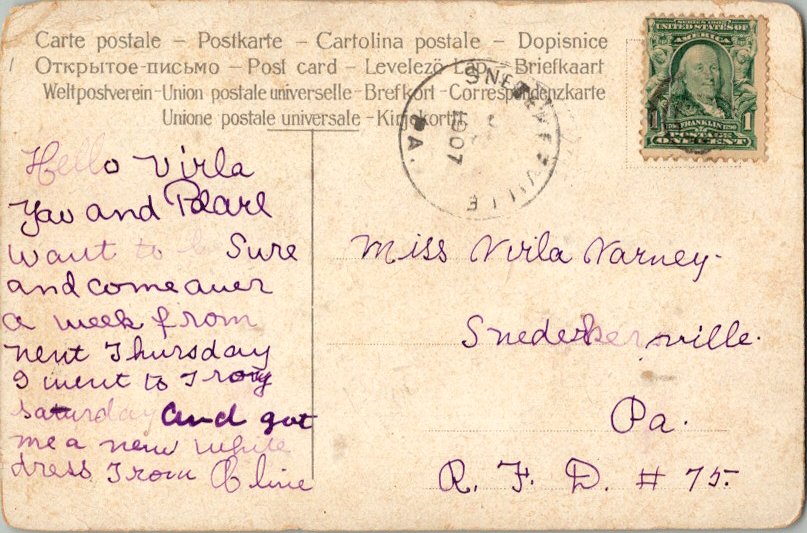 Carte postale – Postkarte – Cartolina postale – Dopisnice
Открытое-письмо – Post card – Levelezö Lap – Briefkaart
Weltpostverein-Union postale universelle-Brefkort-Correspondenzkarte
Unione postale universale-Kirjekortti
SNEDEKERVILLE
PA.
1907
SERIES 1902
UNITED STATES OF AMERICA
1 FRANKLIN 1
POSTAGE
ONE CENT
Hello Virla
You and Pearl
want to be Sure
and come auer
a week from
next Thursday
I went to Troy
saturday and got
me a new white
dress From Cline
Miss Virla Varney.
Snedekersville.
Pa.
R. F. D. # 75.